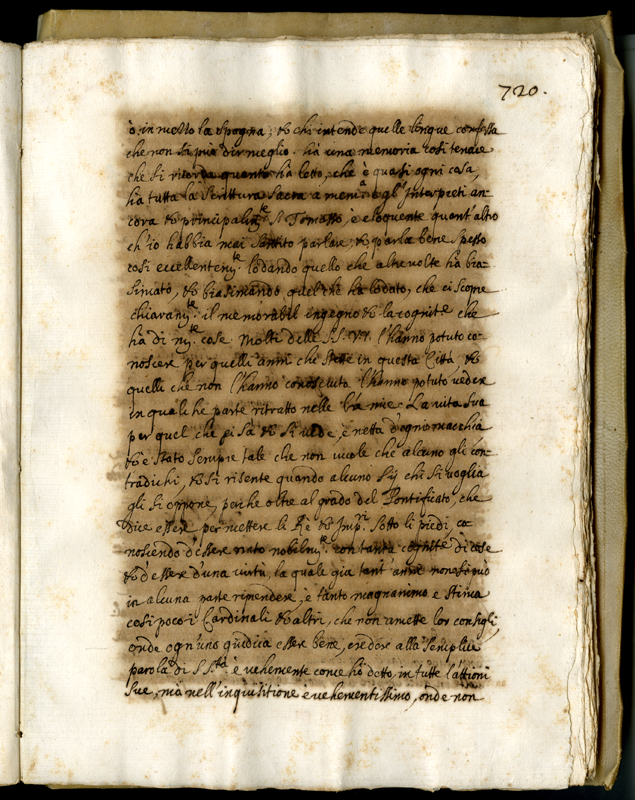 720.
ò in mezzo la Spagna, & chi intende quelle lingue confessa
che non si può dir meglio. hà una memoria così tenace
che si ricorda quanto hà letto, che è quasi ogni cosa,
hà tutta la Scrittura Sacra a mente gl'Interpreti an-
cora & principalm.te S. Tomasso, è eloquente quant'altro
ch'io habbia mai sentito parlare, & parla bene spesso
così eccellentem.te lodando quello che altre volte hà bia-
simato, & biasimando quel che hà lodato, che ci scopre
chiaram.te il memorabil ingegno & la cognit.e che
hà di m.te cose. Molti delle SS. VV. l'hanno potuto co-
noscere per quelli anni che stette in questa Città, &
quelli che non l'hanno conosciuto l'hanno potuto veder
in qualche parte ritratto nelle mie. La vita sua
per quel che si sa & si vede, è netta d'ogni macchia
& è stato sempre tale che non vuole che alcuno gli con-
tradichi, & si risente quando alcuno sij chi si voglia
gli si oppone, perche oltre al grado del Pontificato, che
dice essere per mettere li Rè & Imp.ri sotto li piedi, co-
noscendo d'essere nato nobilm.te con tanta cognit.e di cose
& d'essere d'una virtù, la quale già tant'anni non si può
in alcuna parte riprendere, è tanto magnanimo e stima
così poco i Cardinali & altri, che non amette lor consigli
onde ogn'uno giudica esser bene, creder alla semplice
parola di S. S.tà è vehemente come hò detto, in tutte l'attioni
sue, mà nell'inquisitione è vehementissimo, onde non